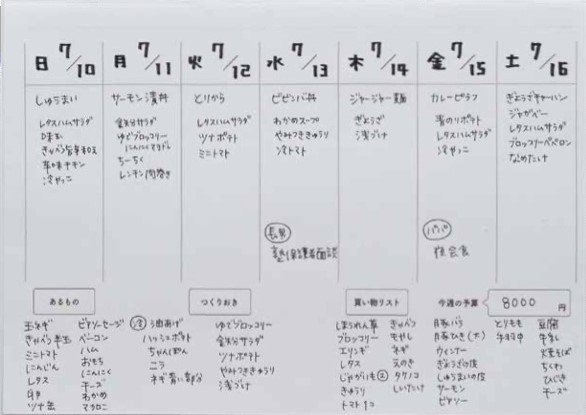 日 7/10
月 7/11
火 7/12
水 7/13
木 7/14
金 7/15
土 7/16
しゅうまい
レタスハムサラダ
味玉
きゃべつ旨辛和え
冷やっこ
サーモン漬丼
ゆでブロッコリー
ちーちく
レンチン肉巻き
とりから
レタスハムサラダ
ツナポテト
ミニトマト
ビビンバ丼
わかめスープ
やみつききゅうり
冷トマト
長男
塾保護者面談
ジャージャー麺
ぎょうざ
浅づけ
カレーピラフ
レタスハムサラダ
冷やっこ
パパ
社会食
ぎょうざチャーハン
ジャガベー
レタスハムサラダ
ブロッコリーペペロン
なめたけ
あるもの
玉ネギ
きゃべつ半玉
ミニトマト
にんじん
レタス
卵
ツナ缶
ビアソーセージ
ベーコン
ハム
おもち
にんにく
チーズ
わかめ
マカロニ
油あげ
ハッシュポテト
ちゃんぽん
ニラ
ネギ青い部分
つくりおき
ゆでブロッコリー
ツナポテト
やみつききゅうり
浅づけ
買い物リスト
ほうれん草
ブロッコリー
エリンギ
レタス
じゃがいも
きゅうり
トマト1コ
きゃべつ
もやし
ネギ
えのき
タケノコ
しいたけ
今週の予算 8000 円
豚バラ
豚ひき(大)
ウィンナー
ぎょうざの皮
しゅうまいの皮
サーモン
ビアソー
とりもも
豆腐
牛乳
焼きそば
ちくわ
ひじき
チーズ